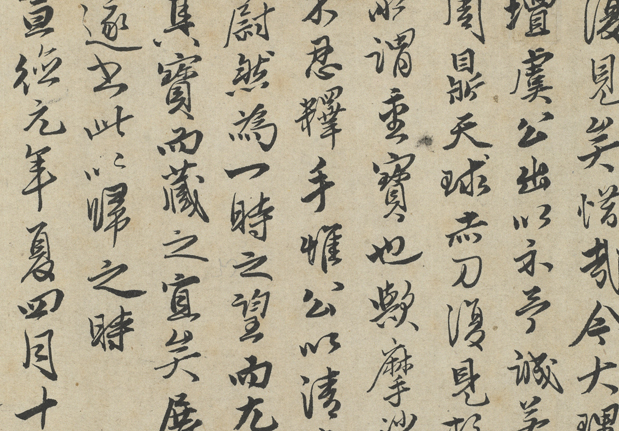 復見矣惜哉今大璫
壇虞公出以示予誠若
周目斯天球赤刀復見於
所謂重寶也歟摩沙
不忍釋手惟公以清
尉然為一時之望而尤
其寶而藏之宜矣展
遂書此以歸之時
宣德元年夏四月十